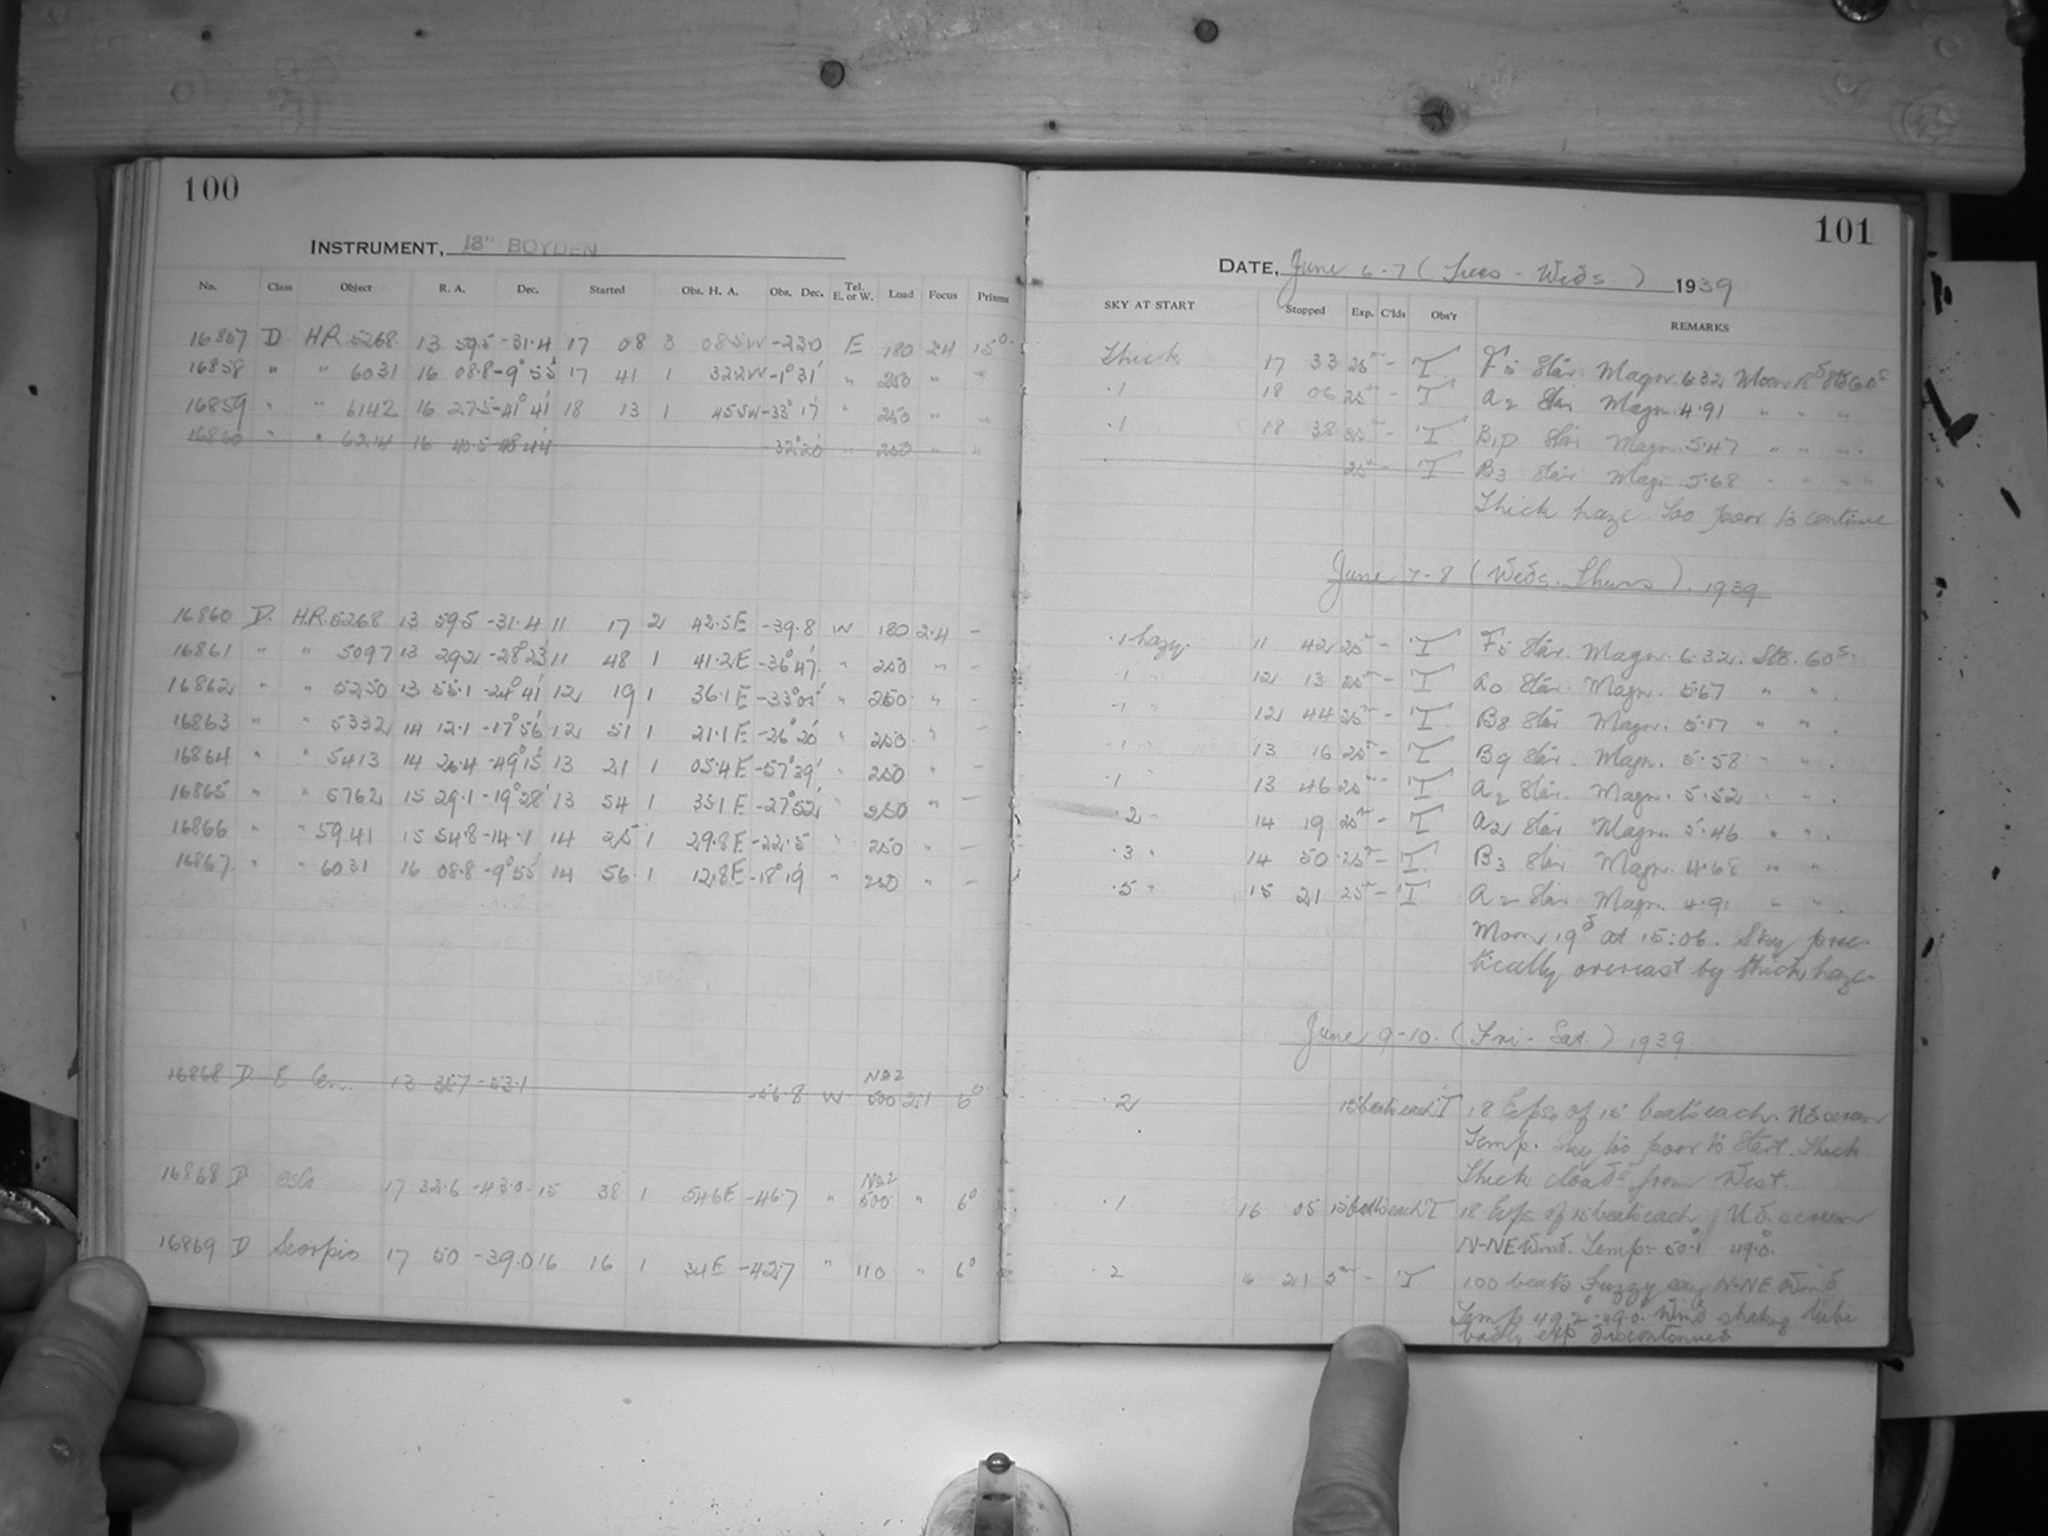 100
INSTRUMENT, 13" BOYDEN
No. Class Object R. A. Dec. Started Obs. H. A. Obs. Dec. Tel. E. or W. Load Focus Prisms
16857 D HR 5268 13 59.5 -31.4 17 08 3 08.5W -23.0 E 180 2.4 15°
16858 " " 6031 16 08.8 -9°55' 17 41 1 32.2W -1°31' " 250 " "
16859 " " 6142 16 27.5 -41°41' 18 13 1 45.5W -33°17' " 250 " "
16860 " " 6214 16 40.5 -32°20' " 250 " "
16860 D. H.R. 5268 13 59.5 -31.4 11 17 2 42.5E -39.8 W 180 2.4 -
16861 " " 5097 13 29.2 -28°23' 11 48 1 41.2E -36°47' " 250 " -
16862 " " 5250 13 55.1 -24°41' 12 19 1 36.1E -33°05' " 250 " -
16863 " " 5332 14 12.1 -17°56' 12 51 1 21.1E -26°20' " 250 " -
16864 " " 5413 14 26.4 -49°15' 13 21 1 05.4E -57°39' " 250 " -
16865 " " 5762 15 29.1 -19°28' 13 54 1 35.1E -27°52' " 250 " -
16866 " " 5941 15 54.8 -14.1 14 25 1 29.8E -22.5 " 250 " -
16867 " " 6031 16 08.8 -9°55' 14 56 1 12.8E -18°19' " 250 " -
16868 D E Cen. 13 -53.1 -56.8 W No 2 500 2.1 6°
16868 D Oslo 17 32.6 -43.0 15 38 1 54.6E -46.7 " No 2 500 " 6°
16869 D Scorpio 17 50 -39.0 16 16 1 34E -42.7 " 110 " 6°
101
DATE, June 6-7 (Tues - Weds.) 1939
SKY AT START Stopped Exp. C'lds Obs'r REMARKS
Thick 17 33 25m - T F5 Star. Magn. 6.32 Moon 60s
.1 18 06 25m - T A2 Star Magn. 4.91 " " "
.1 18 38 25m - T B1p Star Magn. 5.47 " " "
25m - T B3 Star Magn. 5.68 " " "
Thick haze. Too poor to continue
June 7-8 (Weds. Thurs). 1939
.1 hazy. 11 42 25m - T F5 Star. Magn. 6.32. Stb. 60s.
.1 " 12 13 25m - T A0 Star. Magn. 5.67 " " .
.1 " 12 44 25m - T B8 Star Magn. 5.17 " " .
.1 " 13 16 25m - T B9 Star. Magn. 5.58 " " .
.1 " 13 46 25m - T A2 Star. Magn. 5.52 " " .
.2 - 14 19 25m - T A2 Star Magn. 5.46 " " .
.3 " 14 50 25m - T B3 Star Magn. 4.68 " " .
.5 " 15 21 25m - T A2 Star Magn. 4.91 " " .
Moon 19d at 15:06. Sky prac-
tically overcast by thick haze.
June 9-10. (Fri - Sat.) 1939.
.2 15 beats each T 18 Exps of 15 beats each. No screen
Temp. Sky too poor to start. Thick
Thick clouds from West.
.1 16 05 15 beats each T 18 Exps of 15 beats each, No screen
N-NE Wind. Temp = 50.1° 49.0°.
.2 16 21 5m - T 100 beats Fuzzy N-NE Wind
Temp 49.2° - 49.0° Wind shaking tube
badly exp discontinued